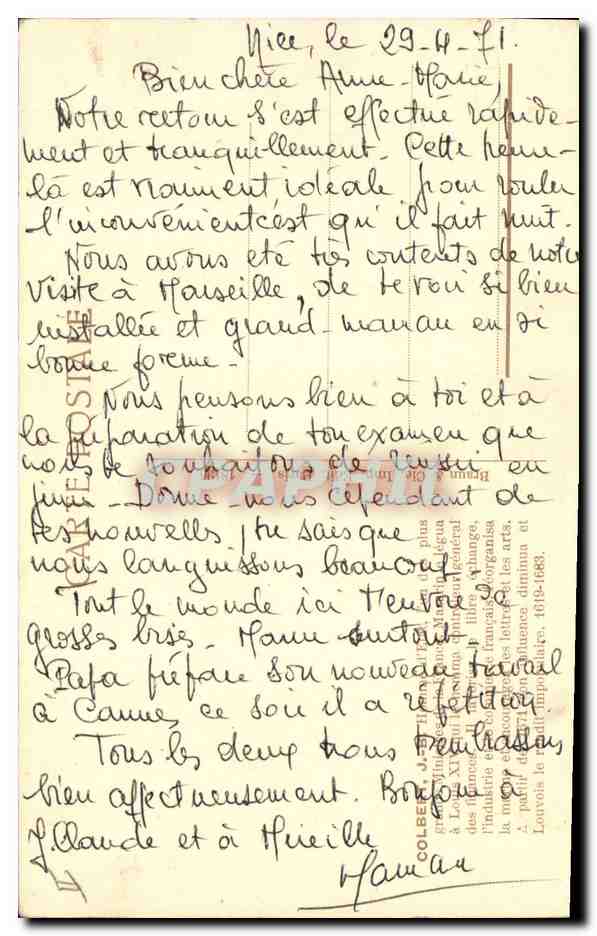 Nice, le 29-4-71.
Bien chère Anne-Marie,
Notre retour s'est effectué rapide-
ment et tranquillement. Cette heure-
là est vraiment idéale pour rouler
l'inconvénient c'est qu'il fait nuit.
Nous avons été très contents de notre
visite à Marseille, de te voir si bien
installée et grand-maman en si
bonne forme-
Nous pensons bien à toi et à
la préparation de ton examen que
nous te souhaitons de réussir en
juin- Donne-nous cependant de
tes nouvelles, tu sais que
nous languissons beaucoup-
Tout le monde ici t'envoie de
grosses bises- Mamie surtout-
Papa prépare son nouveau travail
à Cannes, ce soir il a répétition.
Tous les deux nous t'embrassons
bien affectueusement. Bonjour à
J. Claude et à Mireille
Maman
CARTE POSTALE
Braun & Cie, Imp.
COLBERT, J.-B.
plus
Mazarin légua
à Louis XIV qui le nomma contrôleur général
des finances, libre échange,
l'industrie et le commerce français, réorganisa
la marine et encouragea les lettres et les arts.
A partir de 1671 son influence diminua et
Louvois le rendit impopulaire. 1619-1683.